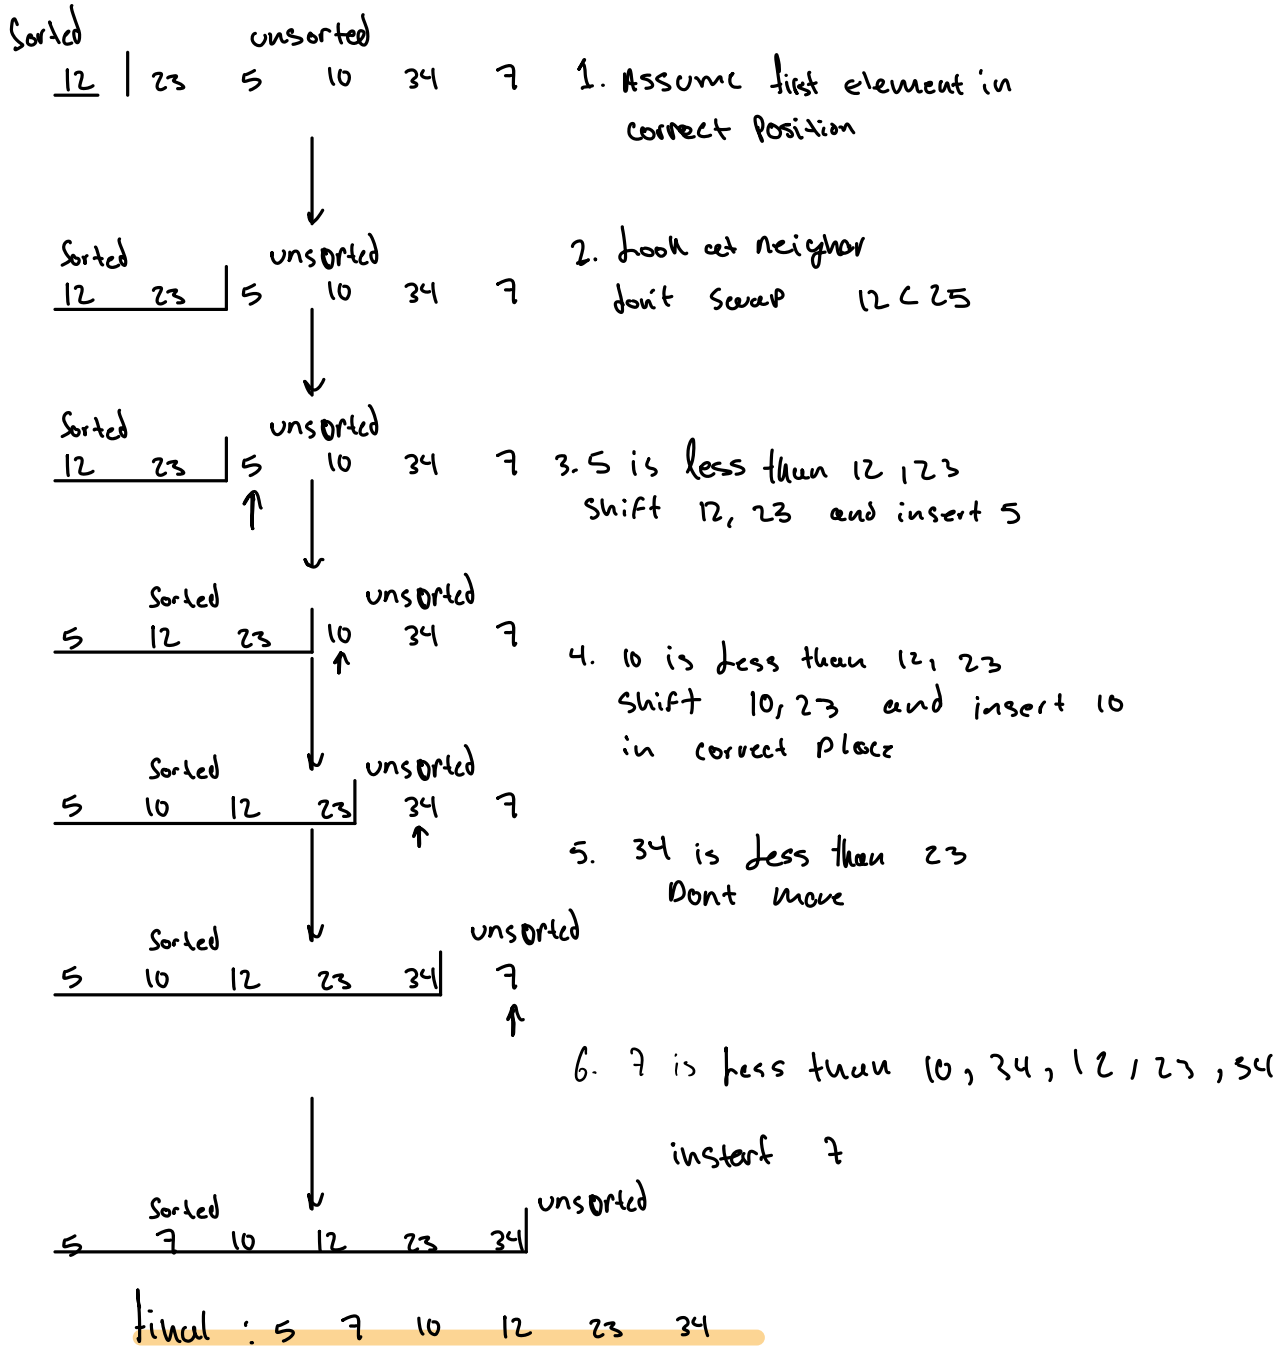 Sorted unsorted
12 | 23 5 10 34 7 1. Assume first element in
correct Position
Sorted unsorted 2. Look at neighor
12 23 5 10 34 7 don't swap 12 < 25
Sorted unsorted
12 23 5 10 34 7 3. 5 is less than 12, 23
↑ shift 12, 23 and insert 5
Sorted unsorted
5 12 23 10 34 7
↑ 4. 10 is Less than 12, 23
shift 10, 23 and insert 10
in correct Place
Sorted unsorted
5 10 12 23 34 7
↑ 5. 34 is Less than 23
Dont move
Sorted unsorted
5 10 12 23 34 7
↑
6. 7 is Less than 10, 34, 12, 23, 34
instert 7
Sorted unsorted
5 7 10 12 23 34
final : 5 7 10 12 23 34